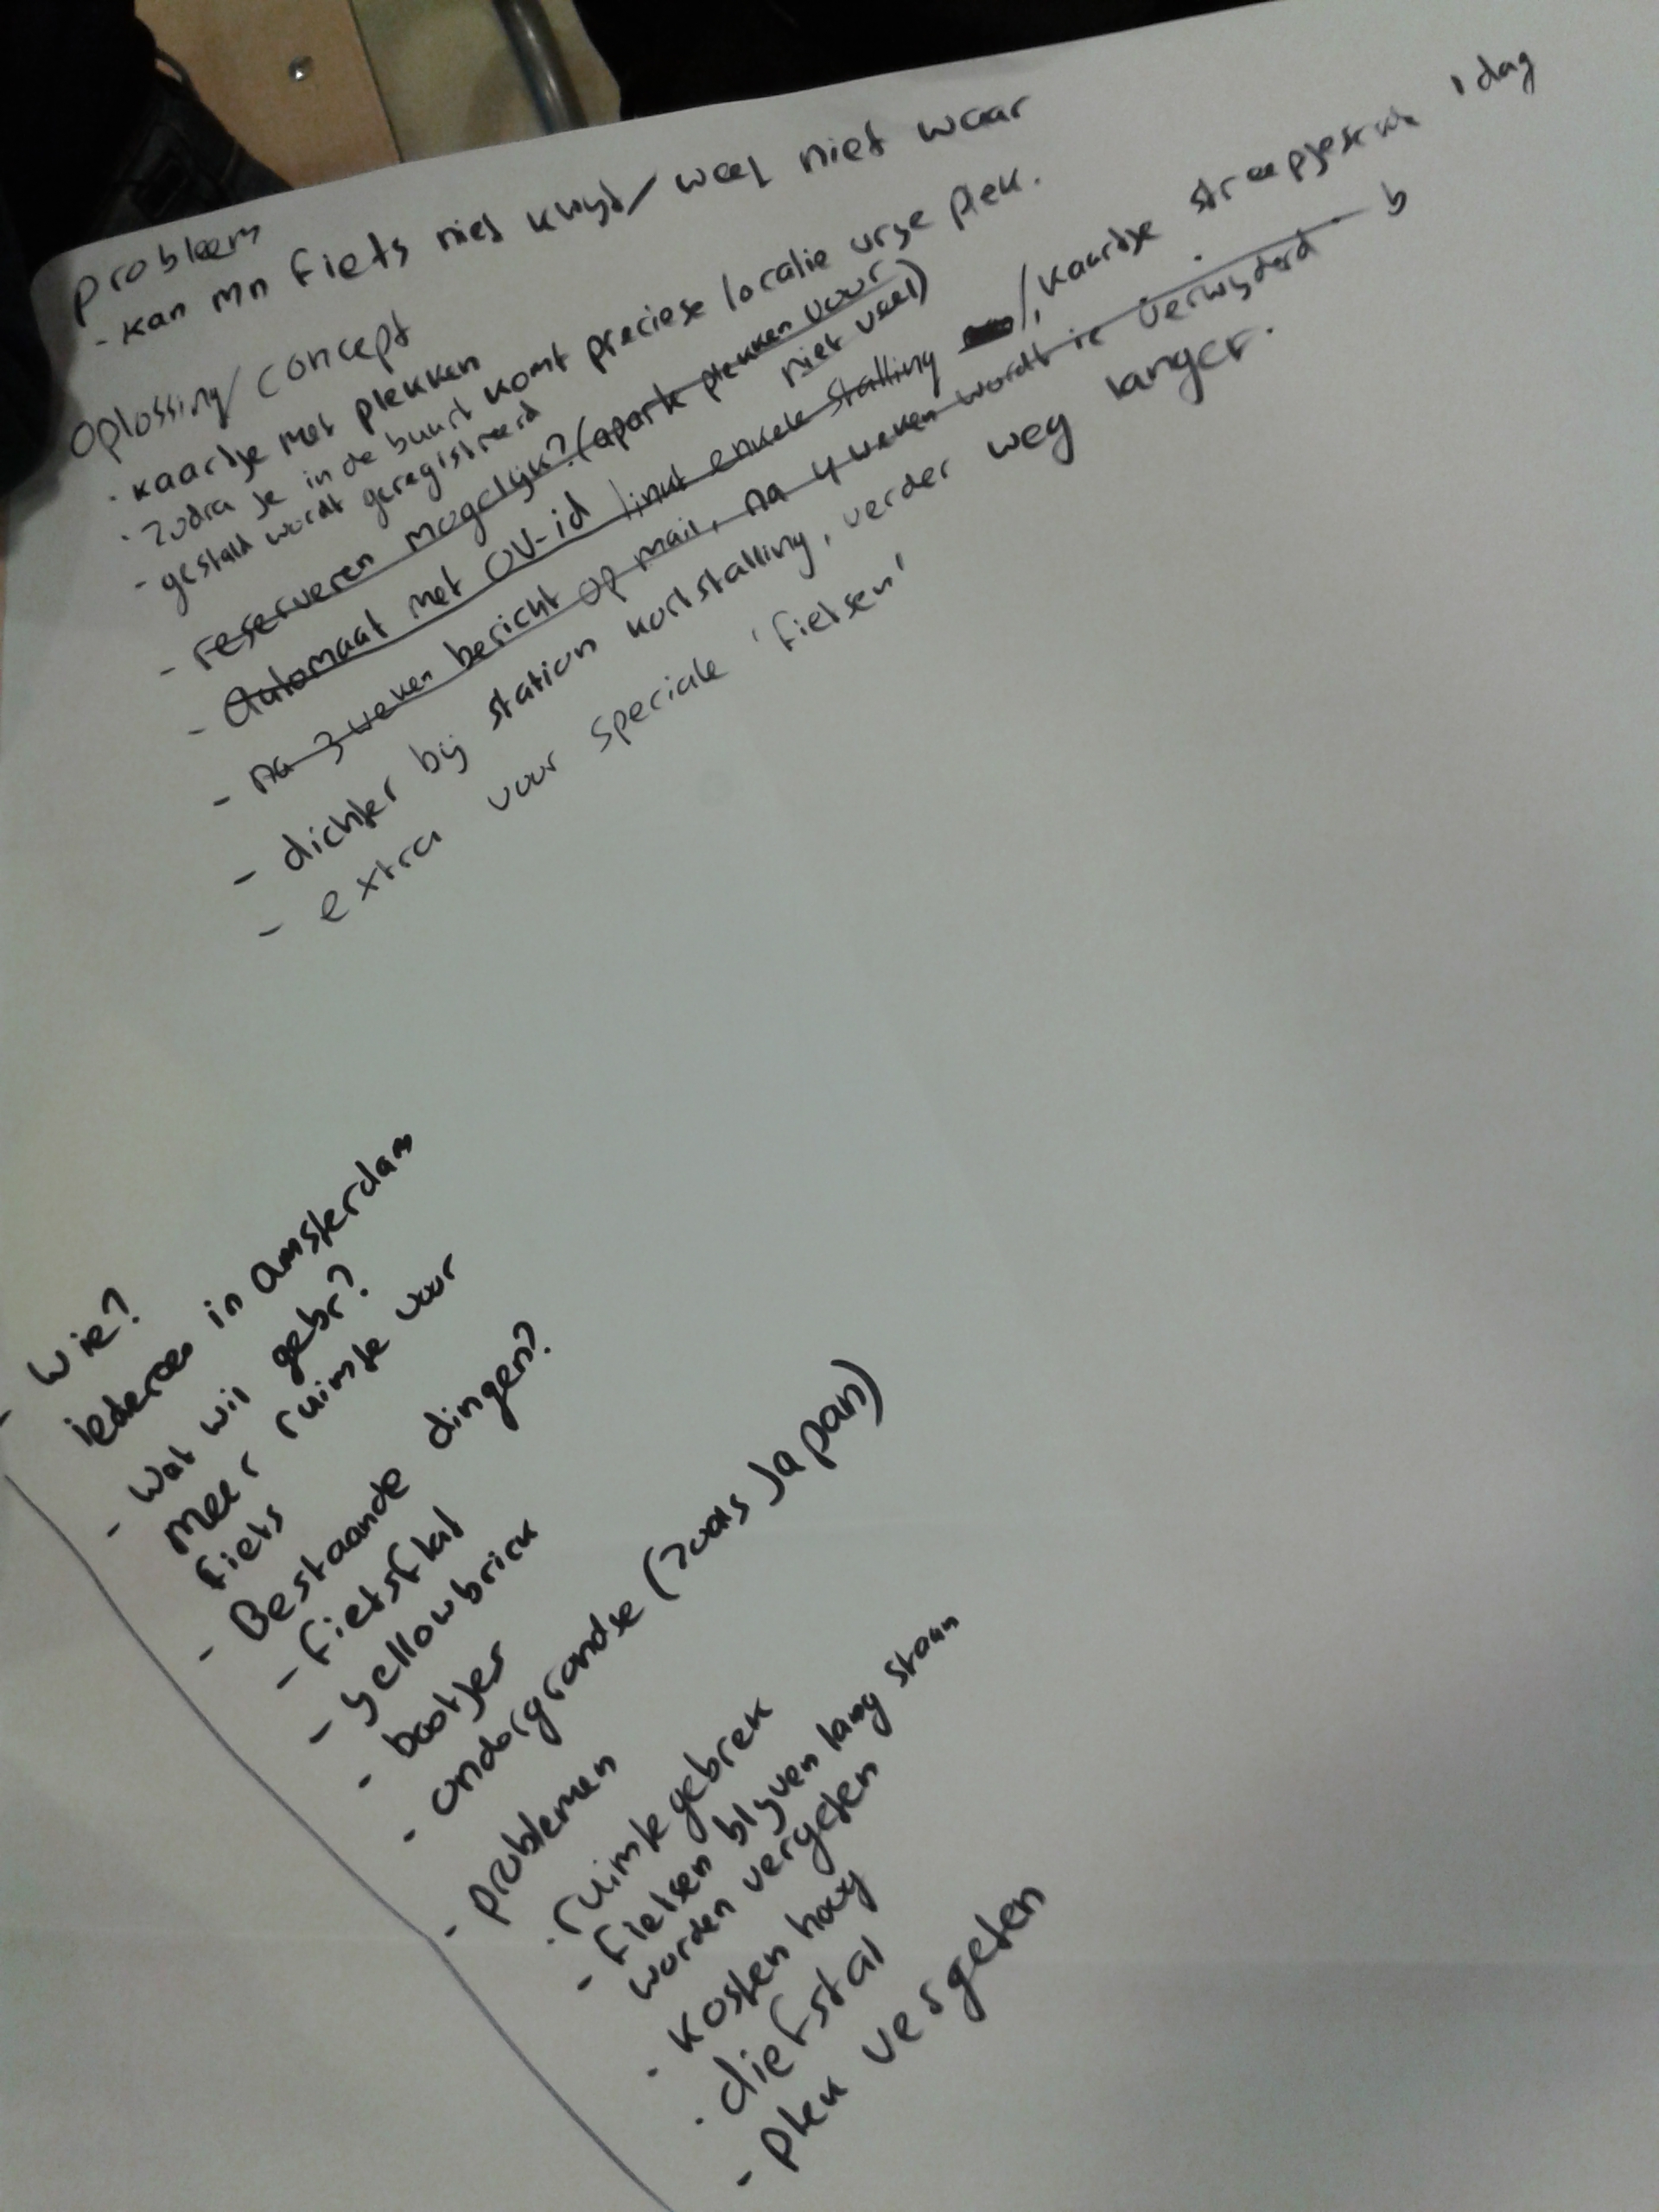 probleem
- kan mn fiets niet kwijt/ weet niet waar
Oplossing/concept
· kaartje met plekken
· zodra je in de buurt komt preciese localie vrije plek.
- gestald wordt geregistreerd
- reserveren mogelijk? (aparte plekken voor
niet veel)
- Automaat met OV-id linkt enkele stalling /, kaartje 1 dag
- na 3 weken bericht op mail, na 4 weken wordt ie verwijderd b
- dichter bij station kortstalling, verder weg langer.
- extra voor speciale 'fietsen'
- wie?
iedereen in Amsterdam
- Wat wil gebr?
meer ruimte voor
fiets
- Bestaande dingen?
- fietsflat
- yellowbrick
- bootjes
- ondergrondse (zoals Japan)
- problemen
· ruimte gebrek
- fietsen blijven lang staan
worden vergeten
· kosten hoog
· diefstal
- plek vergeten